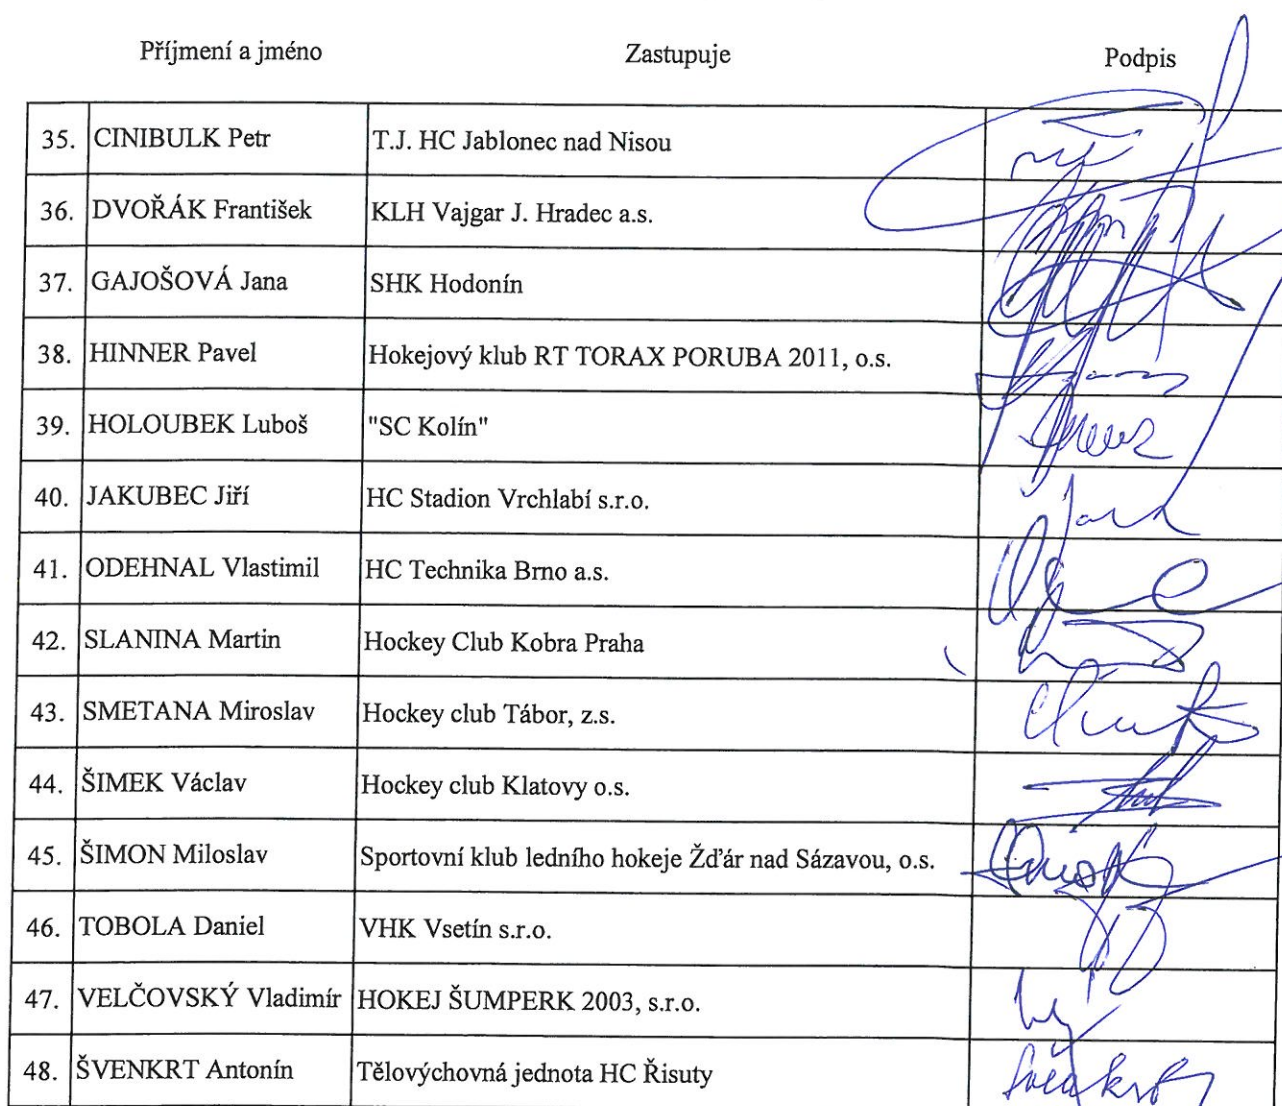 Příjmení a jméno Zastupuje Podpis
35. CINIBULK Petr T.J. HC Jablonec nad Nisou
36. DVOŘÁK František KLH Vajgar J. Hradec a.s.
37. GAJOŠOVÁ Jana SHK Hodonín
38. HINNER Pavel Hokejový klub RT TORAX PORUBA 2011, o.s.
39. HOLOUBEK Luboš "SC Kolín"
40. JAKUBEC Jiří HC Stadion Vrchlabí s.r.o.
41. ODEHNAL Vlastimil HC Technika Brno a.s.
42. SLANINA Martin Hockey Club Kobra Praha
43. SMETANA Miroslav Hockey club Tábor, z.s.
44. ŠIMEK Václav Hockey club Klatovy o.s.
45. ŠIMON Miloslav Sportovní klub ledního hokeje Žďár nad Sázavou, o.s.
46. TOBOLA Daniel VHK Vsetín s.r.o.
47. VELČOVSKÝ Vladimír HOKEJ ŠUMPERK 2003, s.r.o.
48. ŠVENKRT Antonín Tělovýchovná jednota HC Řisuty